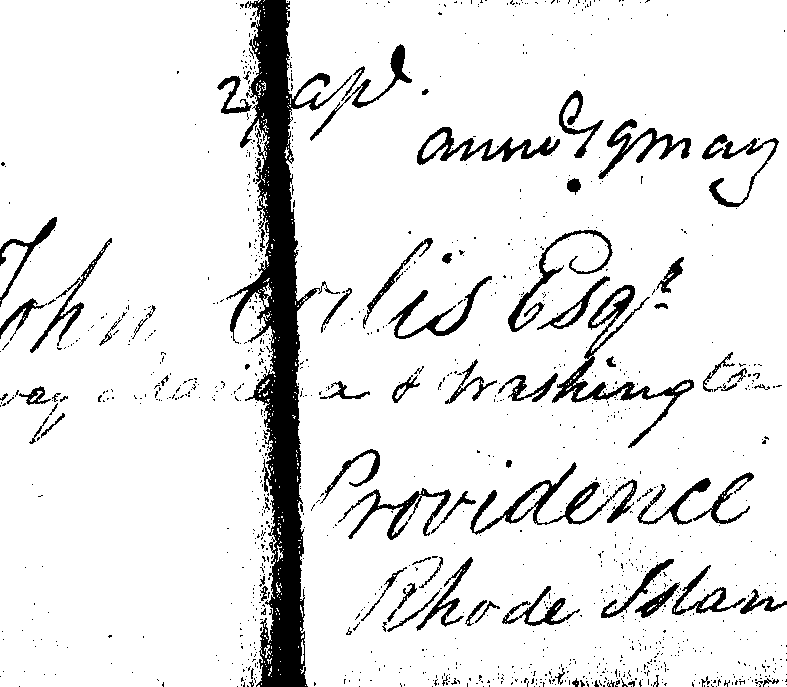 29 apl.
answd 9 may
John Corlis Esqr.
way Marietta & Washington
Providence
Rhode Islan